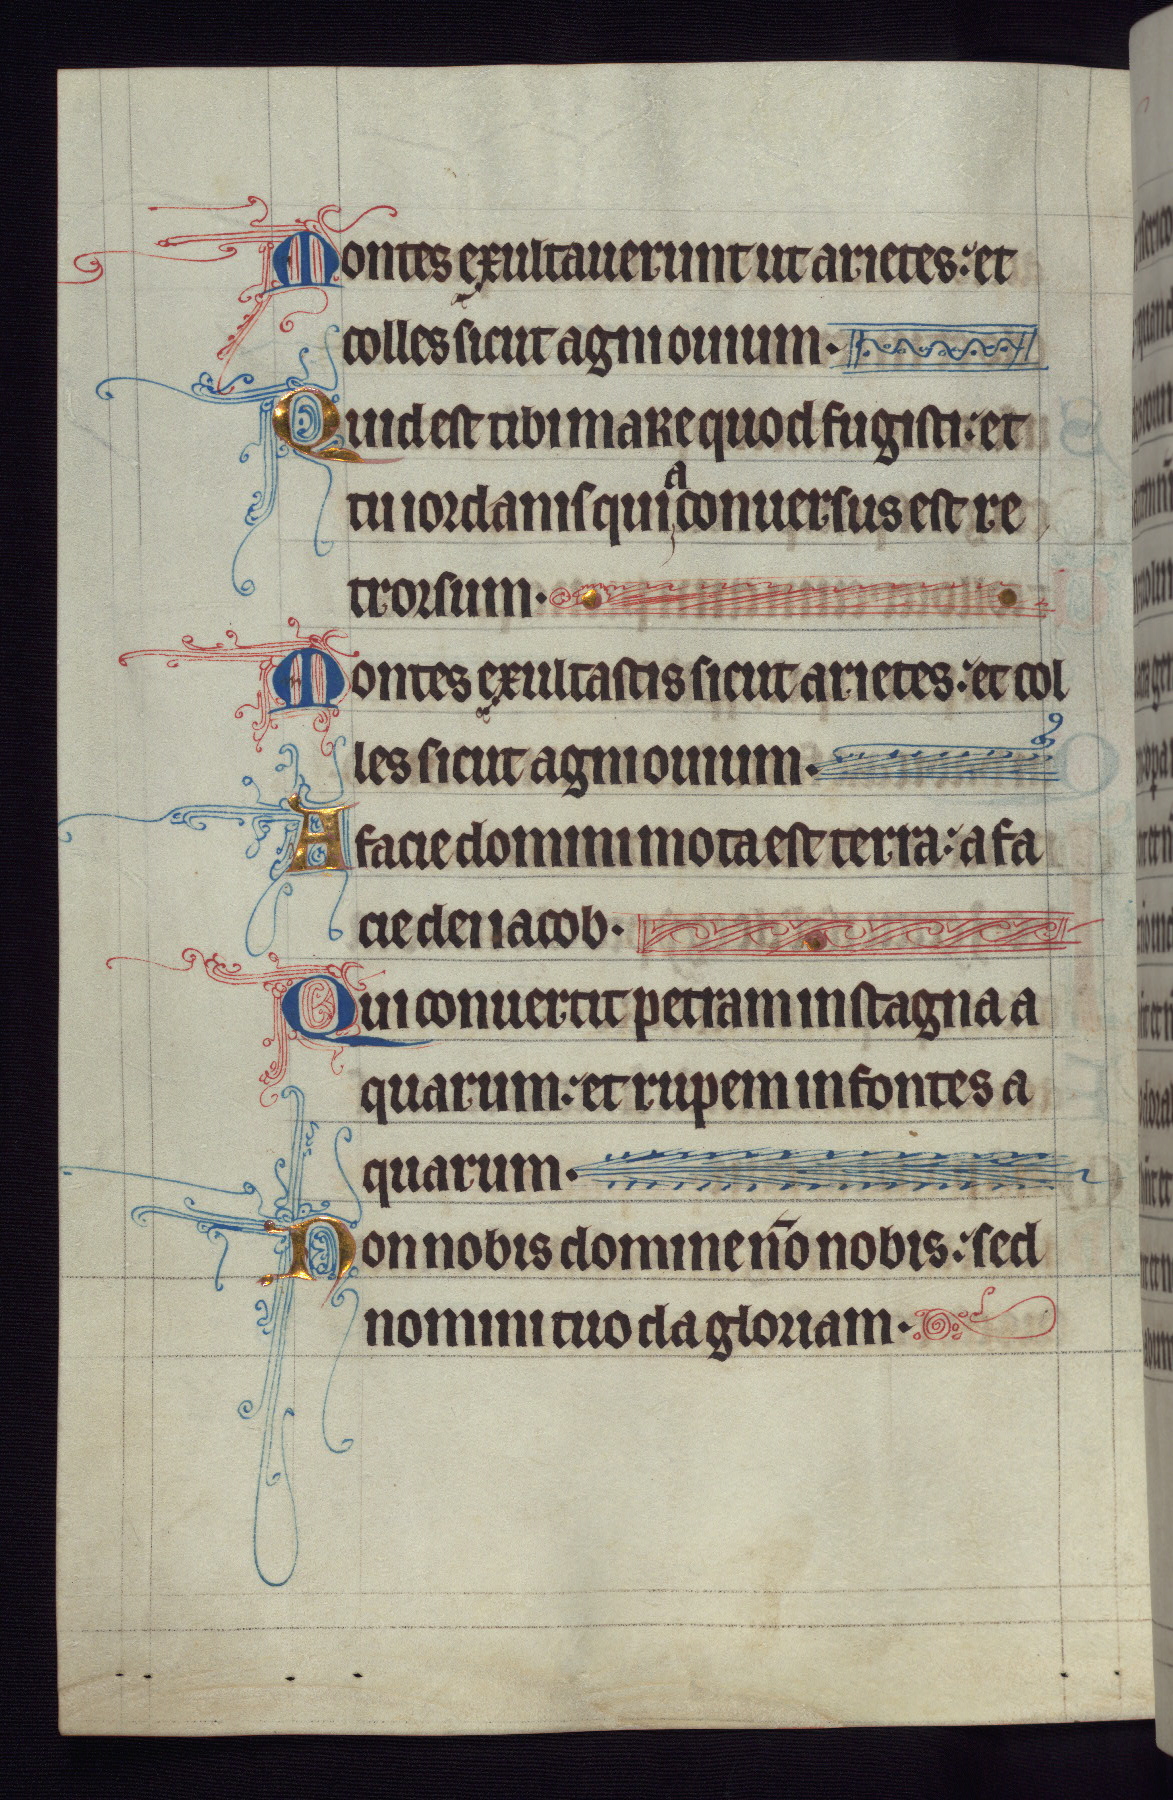 Montes exultauerunt ut arietes: et
colles sicut agni ouium.
Quid est tibi mare quod fugisti: et
tu iordanis quia conuersus est re
trorsum.
Montes exultastis sicut arietes: et col
les sicut agni ouium.
A facie domini mota est terra: a fa
cie dei iacob.
Qui conuertit petram in stagna a
quarum: et rupem in fontes a
quarum.
Non nobis domine nō nobis: sed
nomini tuo da gloriam.